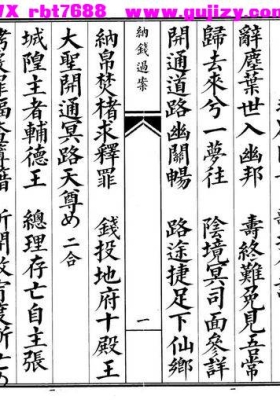 VX rbt7688 www.gujizy.com
辭塵葉世入幽邦 壽終難免見五常
歸去來兮一夢往 陰境冥司面參詳
開通道路幽關暢 路途捷足下仙鄉
納錢過案
一
納帛焚楮求釋罪 錢投地府十殿王
大聖開通冥路天尊め二合
城隍主者輔德王 總理存亡自主張